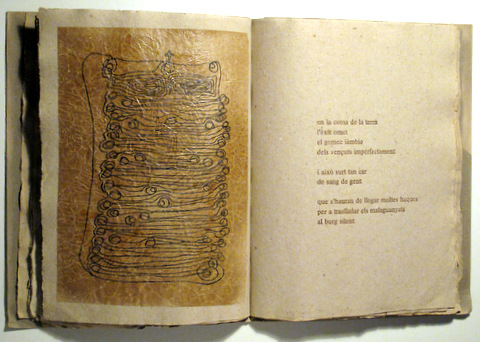 en la coma de la terra
l'èxit omet
el gemec iàmbic
dels vençuts imperfectament
i això surt tan car
de sang de gent
que s'hauran de llogar moltes haques
per a traslladar els malaguanyats
al burg silent